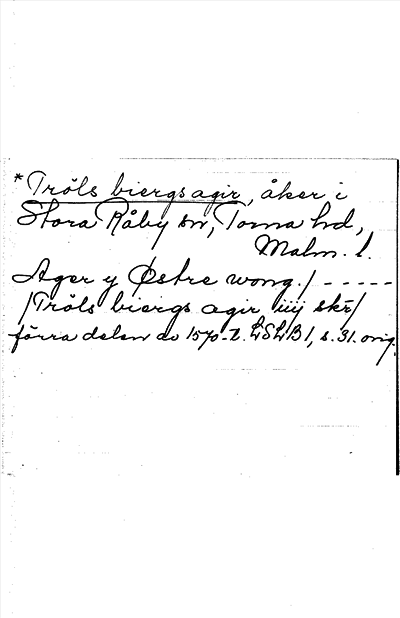 *Tröls biergs agir, åker i
Stora Råby sn, Torna hd,
Malm. l.
Ager y Østre wong. / - - - - -
/ Tröls biergs agir iiij skr /
förra delen av 1570-t. LSLB I, s. 31. orig.